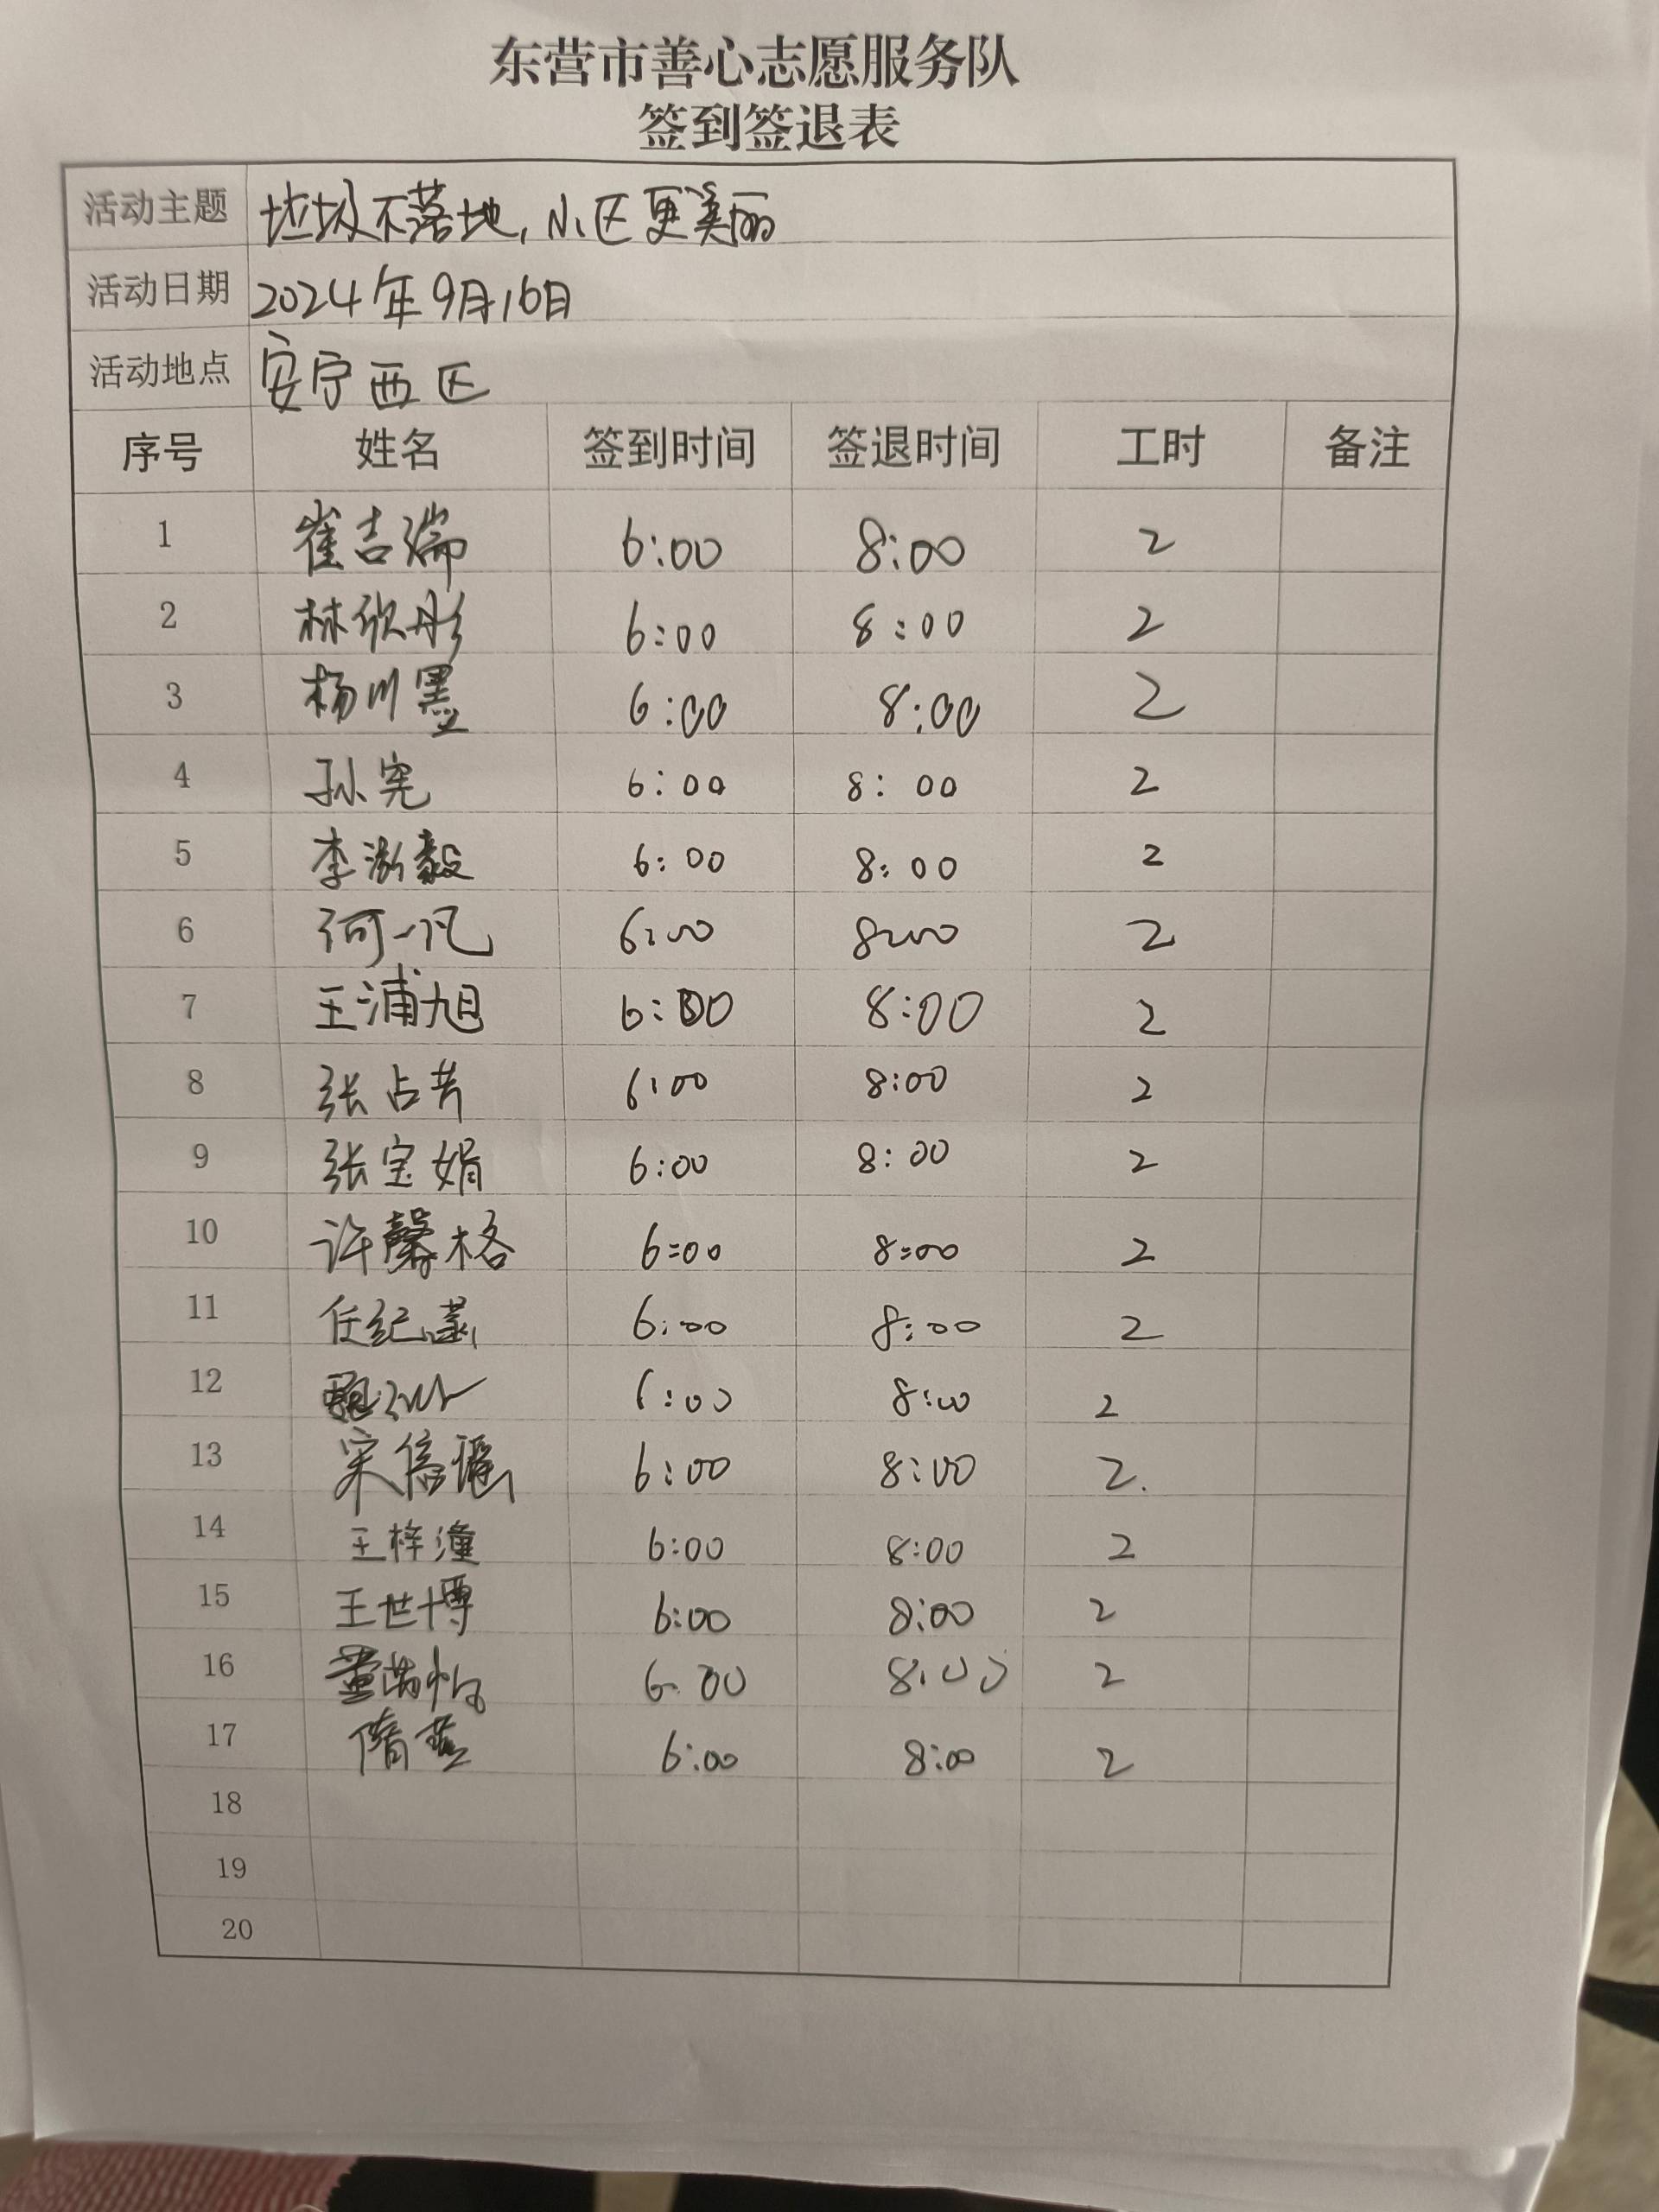 东营市善心志愿服务队
签到签退表
活动主题 垃圾不落地,小区更美丽
活动日期 2024年9月16日
活动地点 安宁西区
序号 姓名 签到时间 签退时间 工时 备注
1 崔吉瑞 6:00 8:00 2
2 林欣彤 6:00 8:00 2
3 杨川墨 6:00 8:00 2
4 孙宪 6:00 8:00 2
5 李泓毅 6:00 8:00 2
6 何一凡 6:00 8:00 2
7 王浦旭 6:00 8:00 2
8 张占芳 6:00 8:00 2
9 张宝娟 6:00 8:00 2
10 许馨格 6:00 8:00 2
11 任纪菡 6:00 8:00 2
12 6:00 8:00 2
13 宋信谣 6:00 8:00 2.
14 王梓潼 6:00 8:00 2
15 王世博 6:00 8:00 2
16 董怡 6:00 8:00 2
17 隋 6:00 8:00 2
18
19
20